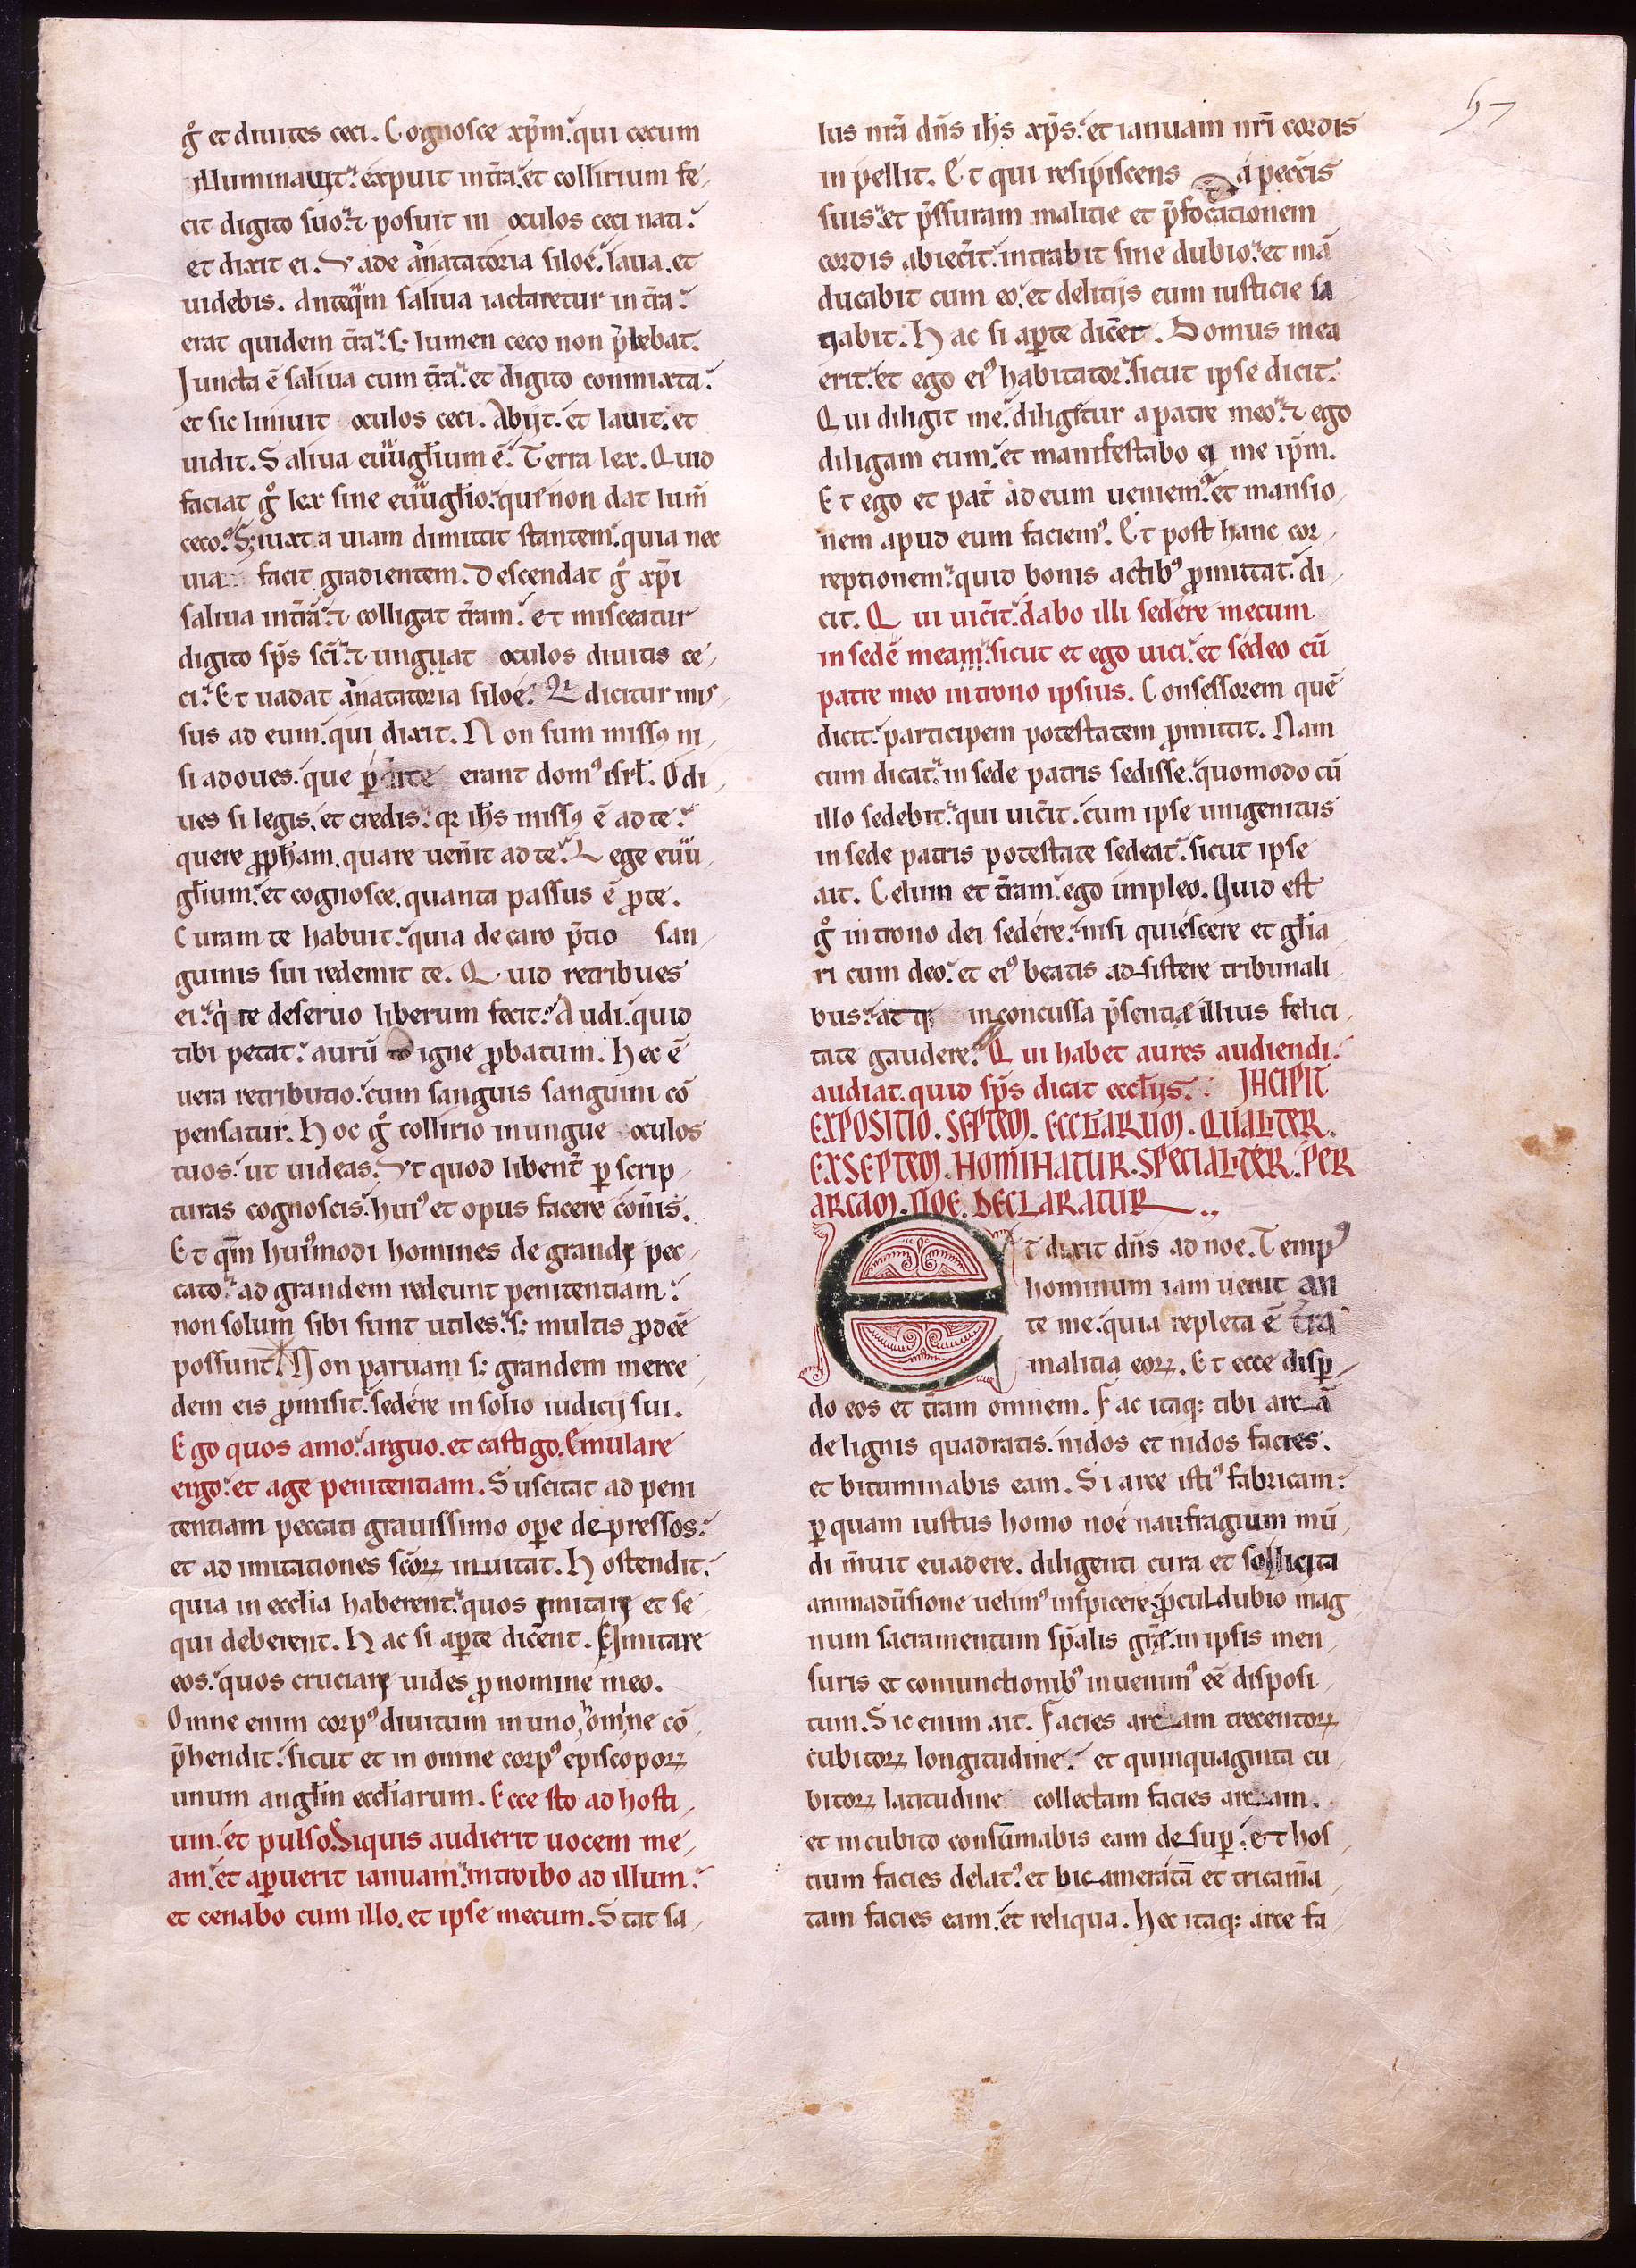 g̊ et diuites ceci. Cognosce xp̄m. qui cecum
illuminauit. expuit in t̄ra. et collirium fe-
cit digito suo. ⁊ posuit in oculos ceci nati.
et dixit ei. Vade a natatoria siloe. laua. et
uidebis. Anteq̄m saliua iactaretur in t̄ra.
erat quidem t̄ra. s; lumen ceco non p̄bebat.
Juncta ē saliua cum t̄ra. et digito conmixta.
et sic liniuit oculos ceci. Abijt. et lauit. et
uidit. Saliua euuḡlium ē. Terra lex. Quid
faciat g̊ lex sine euuḡlio. que non dat lum̄
ceco. S; iuxta uiam dimittit stantem. quia nec
uia facit gradientem. Descendat g̊ xp̄i
saliua in t̄ra. ⁊ colligat t̄ram. et misceatur
digito sp̄s sc̄i. ⁊ unguat oculos diuitis ce-
ci. Et uadat a natatoria siloe. Qr dicitur mis-
sus ad eum. qui dixit. Non sum missꝰ ni-
si ad oues. que ꝑ erant domꝰ isrl̄. O di-
ues si legis. et credis. qr ih̄s missꝰ ē ad te.
quere ꝓph̄am. quare uen̄it ad te. Lege euu-
ḡlium. et cognosce. quanta passus ē ꝓ te.
Curam te habuit. quia de caro p̄tio san-
guinis sui redemit te. Quid retribues
ei. qⁱ te de seruo liberum fecit. Audi. quid
tibi petat. aurū igne ꝓbatum. Hec ē
uera retributio. cum sanguis sanguini cō
pensatur. Hoc g̊ collirio inungue oculos
tuos. ut uideas. Vt quod libent̄ ꝑ scrip-
turas cognoscis. huiꝰ et opus facere com̄is.
Et q̄m huiꝰmodi homines de grande pec-
cato. ad grandem redeunt penitentiam.
non solum sibi sunt utiles. s; multis ꝓdeē
possunt. Non paruam s; grandem merce
dem eis ꝓmisit. sedere in solio iudicij sui.
Ego quos amo. arguo. et castigo. Emulare
ergo. et age penitentiam. Suscitat ad peni
tentiam peccati grauissimo oꝑe depressos.
et ad imitationes sc̄oꝝ inuitat. Hostendit.
quia in eccl̄ia haberent. quos imitare et se-
qui deberent. Hac si aꝑte dic̄ent. Imitare
eos. quos cruciare uides ꝓ nomine meo.
Omne enim corpꝰ diuitum in uno, homine cō-
p̄hendit. sicut et in omne corpꝰ episcopoꝝ
unum angl̄m eccl̄iarum. Ecce sto ad hosti-
um. et pulso. Siquis audierit uocem me-
am. et aꝑuerit ianuam. introibo ad illum.
et cenabo cum illo. et ipse mecum. Stat sa-
lus nr̄a dn̄s ih̄s xp̄s. et ianuam nr̄i cordis
inpellit. Et qui resipiscens a pecc̄is
suis. et p̄ssuram malitie et p̄focationem
cordis abiec̄it. intrabit sine dubio. et mā
ducabit cum eo. et delitijs eum iusticie sa
nabit. Hac si aꝑte dic̄et. Domus mea
erit. et ego eiꝰ habitator. sicut ipse dicit.
Qui diligit me. diligetur a patre meo. ⁊ ego
diligam eum. et manifestabo ei me ip̄m.
Et ego et pat̄ ad eum ueniemꝰ. et mansio-
nem apud eum faciemꝰ. Et post hanc cor-
reptionem. quid bonis actibꝰ ꝓmittat. di-
cit. Qui uic̄it. dabo illi sedere mecum
in sedē meam. sicut et ego uici. et sedeo cū
patre meo in trono ipsius. Consessorem quē
dicit. participem potestatem ꝓmittit. Nam
cum dicat. in sede patris sedisse. quomodo cū
illo sedebit. qui uic̄it. cum ipse unigenitus
in sede patris potestate sedeat. sicut ipse
ait. Celum et t̄ram. ego impleo. Quid est
g̊ in trono dei sedere. nisi quiescere et gl̄ia-
ri cum deo. et eiꝰ beatis adsistere tribunali-
bus. at q; inconcussa p̄sentiæ illius felici-
tate gaudere. Qui habet aures audiendi.
audiat. quid sp̄s dicat eccl̄ijs. INCIPIT
EXPOSITIO. SEPTEM. ECCL̄ARUM. QUALITER.
EX SEPTEM. HOMINATUR. SPECIALITER. PER
ARCAM. NOE. DECLARATUR..
Et dixit dn̄s ad noe. Tempꝰ
hominum iam uenit an
te me. quia repleta ē t̄ra
malitia eoꝝ. Et ecce disꝑ-
do eos et t̄ram omnem. Fac itaq; tibi arcā
de lignis quadratis. nidos et nidos facies.
et bituminabis eam. Si arce istiꝰ fabricam.
ꝑ quam iustus homo noe naufragium mū-
di m̄uit euadere. diligenti cura et sollicita
animadūsione uelimꝰ inspicere. ꝓculdubio mag
num sacramentum sp̄alis gr̄e. in ipsis men-
suris et coniunctionibꝰ inuenimꝰ eē disposi-
tum. Sic enim ait. Facies arcam trecentoꝝ
cubitoꝝ longitudine. et quinquaginta cu-
bitoꝝ latitudine collectam facies arcam.
et in cubito consūmabis eam desuꝑ. et hos-
tium facies delatꝰ. et bicameratā et tricam̄a-
tam facies eam. et reliqua. Hec itaq; arce fa-